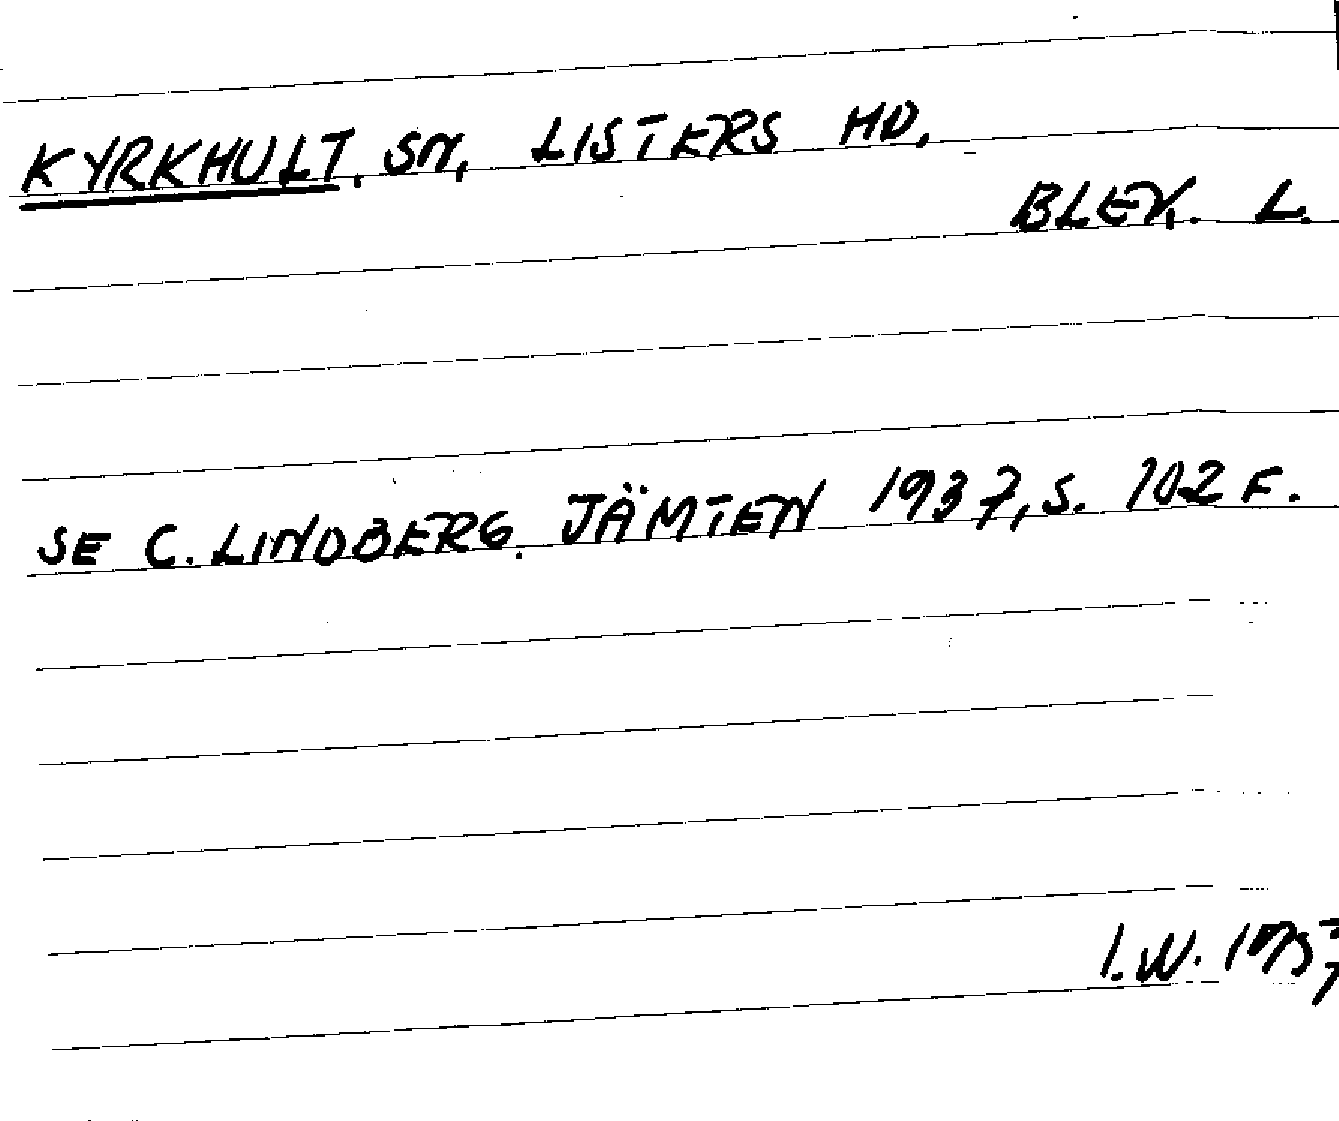 KYRKHULT, SN, LISTERS HD,
BLEK. L.
SE C. LINDBERG. JÄMTEN 1937, S. 102 F.
I.W.